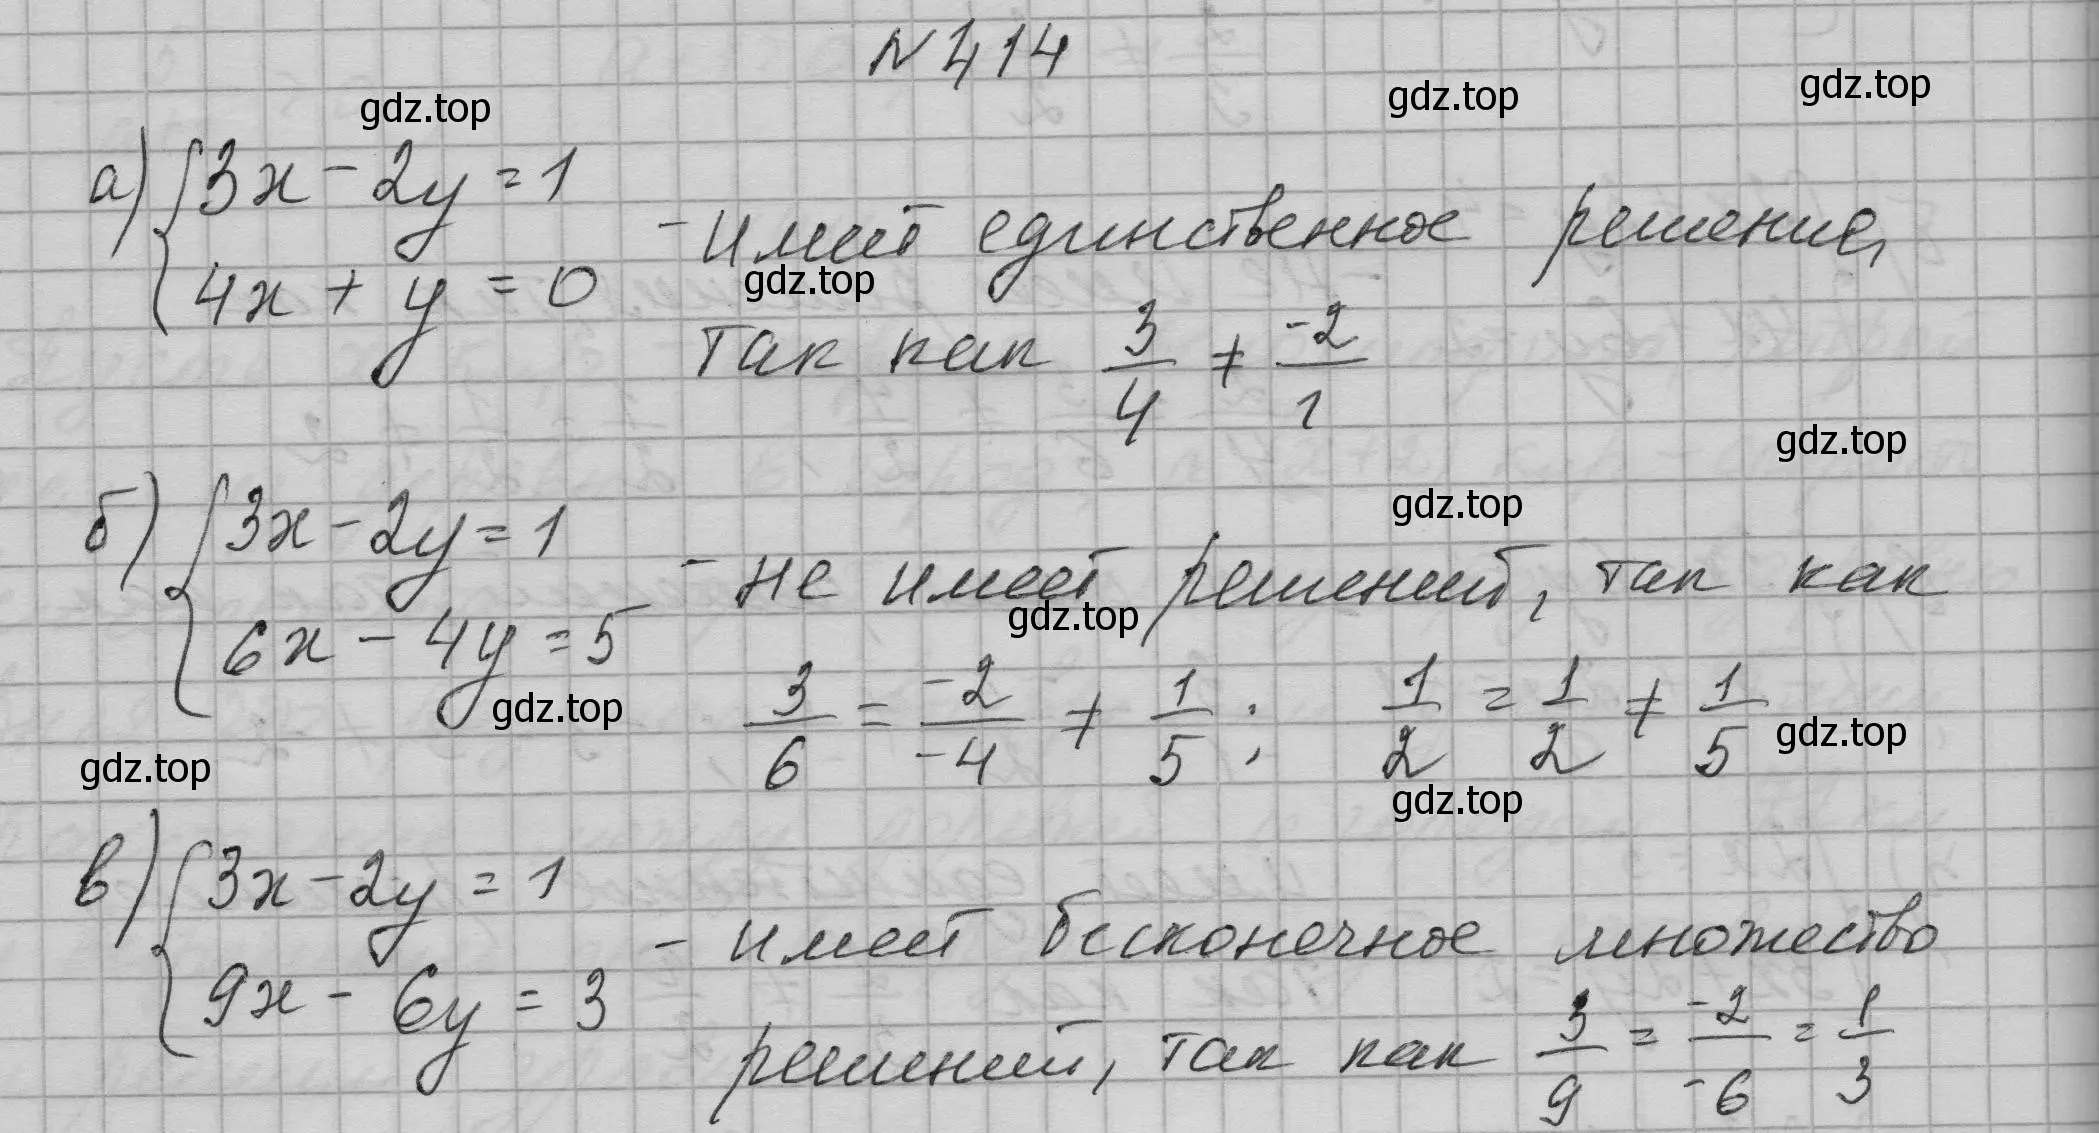 № 414
gdz.top
gdz.top
gdz.top
а) { 3x - 2y = 1
4x + y = 0
- имеет единственное решение,
gdz.top
так как 3/4 ≠ -2/1
gdz.top
б) { 3x - 2y = 1
6x - 4y = 5
gdz.top
- не имеет решений, так как
gdz.top
3/6 = -2/-4 ≠ 1/5 ; 1/2 = 1/2 ≠ 1/5
gdz.top
gdz.top
gdz.top
gdz.top
в) { 3x - 2y = 1
9x - 6y = 3
- имеет бесконечное множество
решений, так как 3/9 = -2/-6 = 1/3